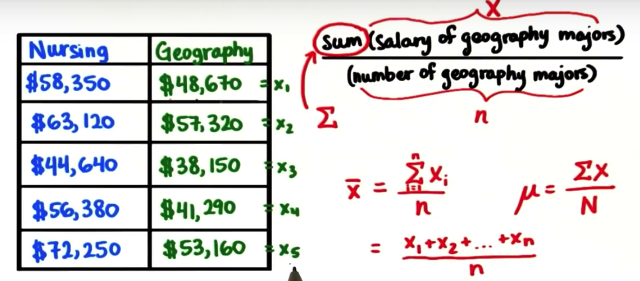 Nursing Geography
$58,350 $48,670 = x₁
$63,120 $57,320 = x₂
$44,640 $38,150 = x₃
$56,380 $41,290 = x₄
$72,250 $53,160 = x₅
x
sum (salary of geography majors)
(number of geography majors)
Σ n
x̄ = n Σ i=1 xᵢ / n
μ = Σx / N
= x₁+x₂+...+xₙ / n